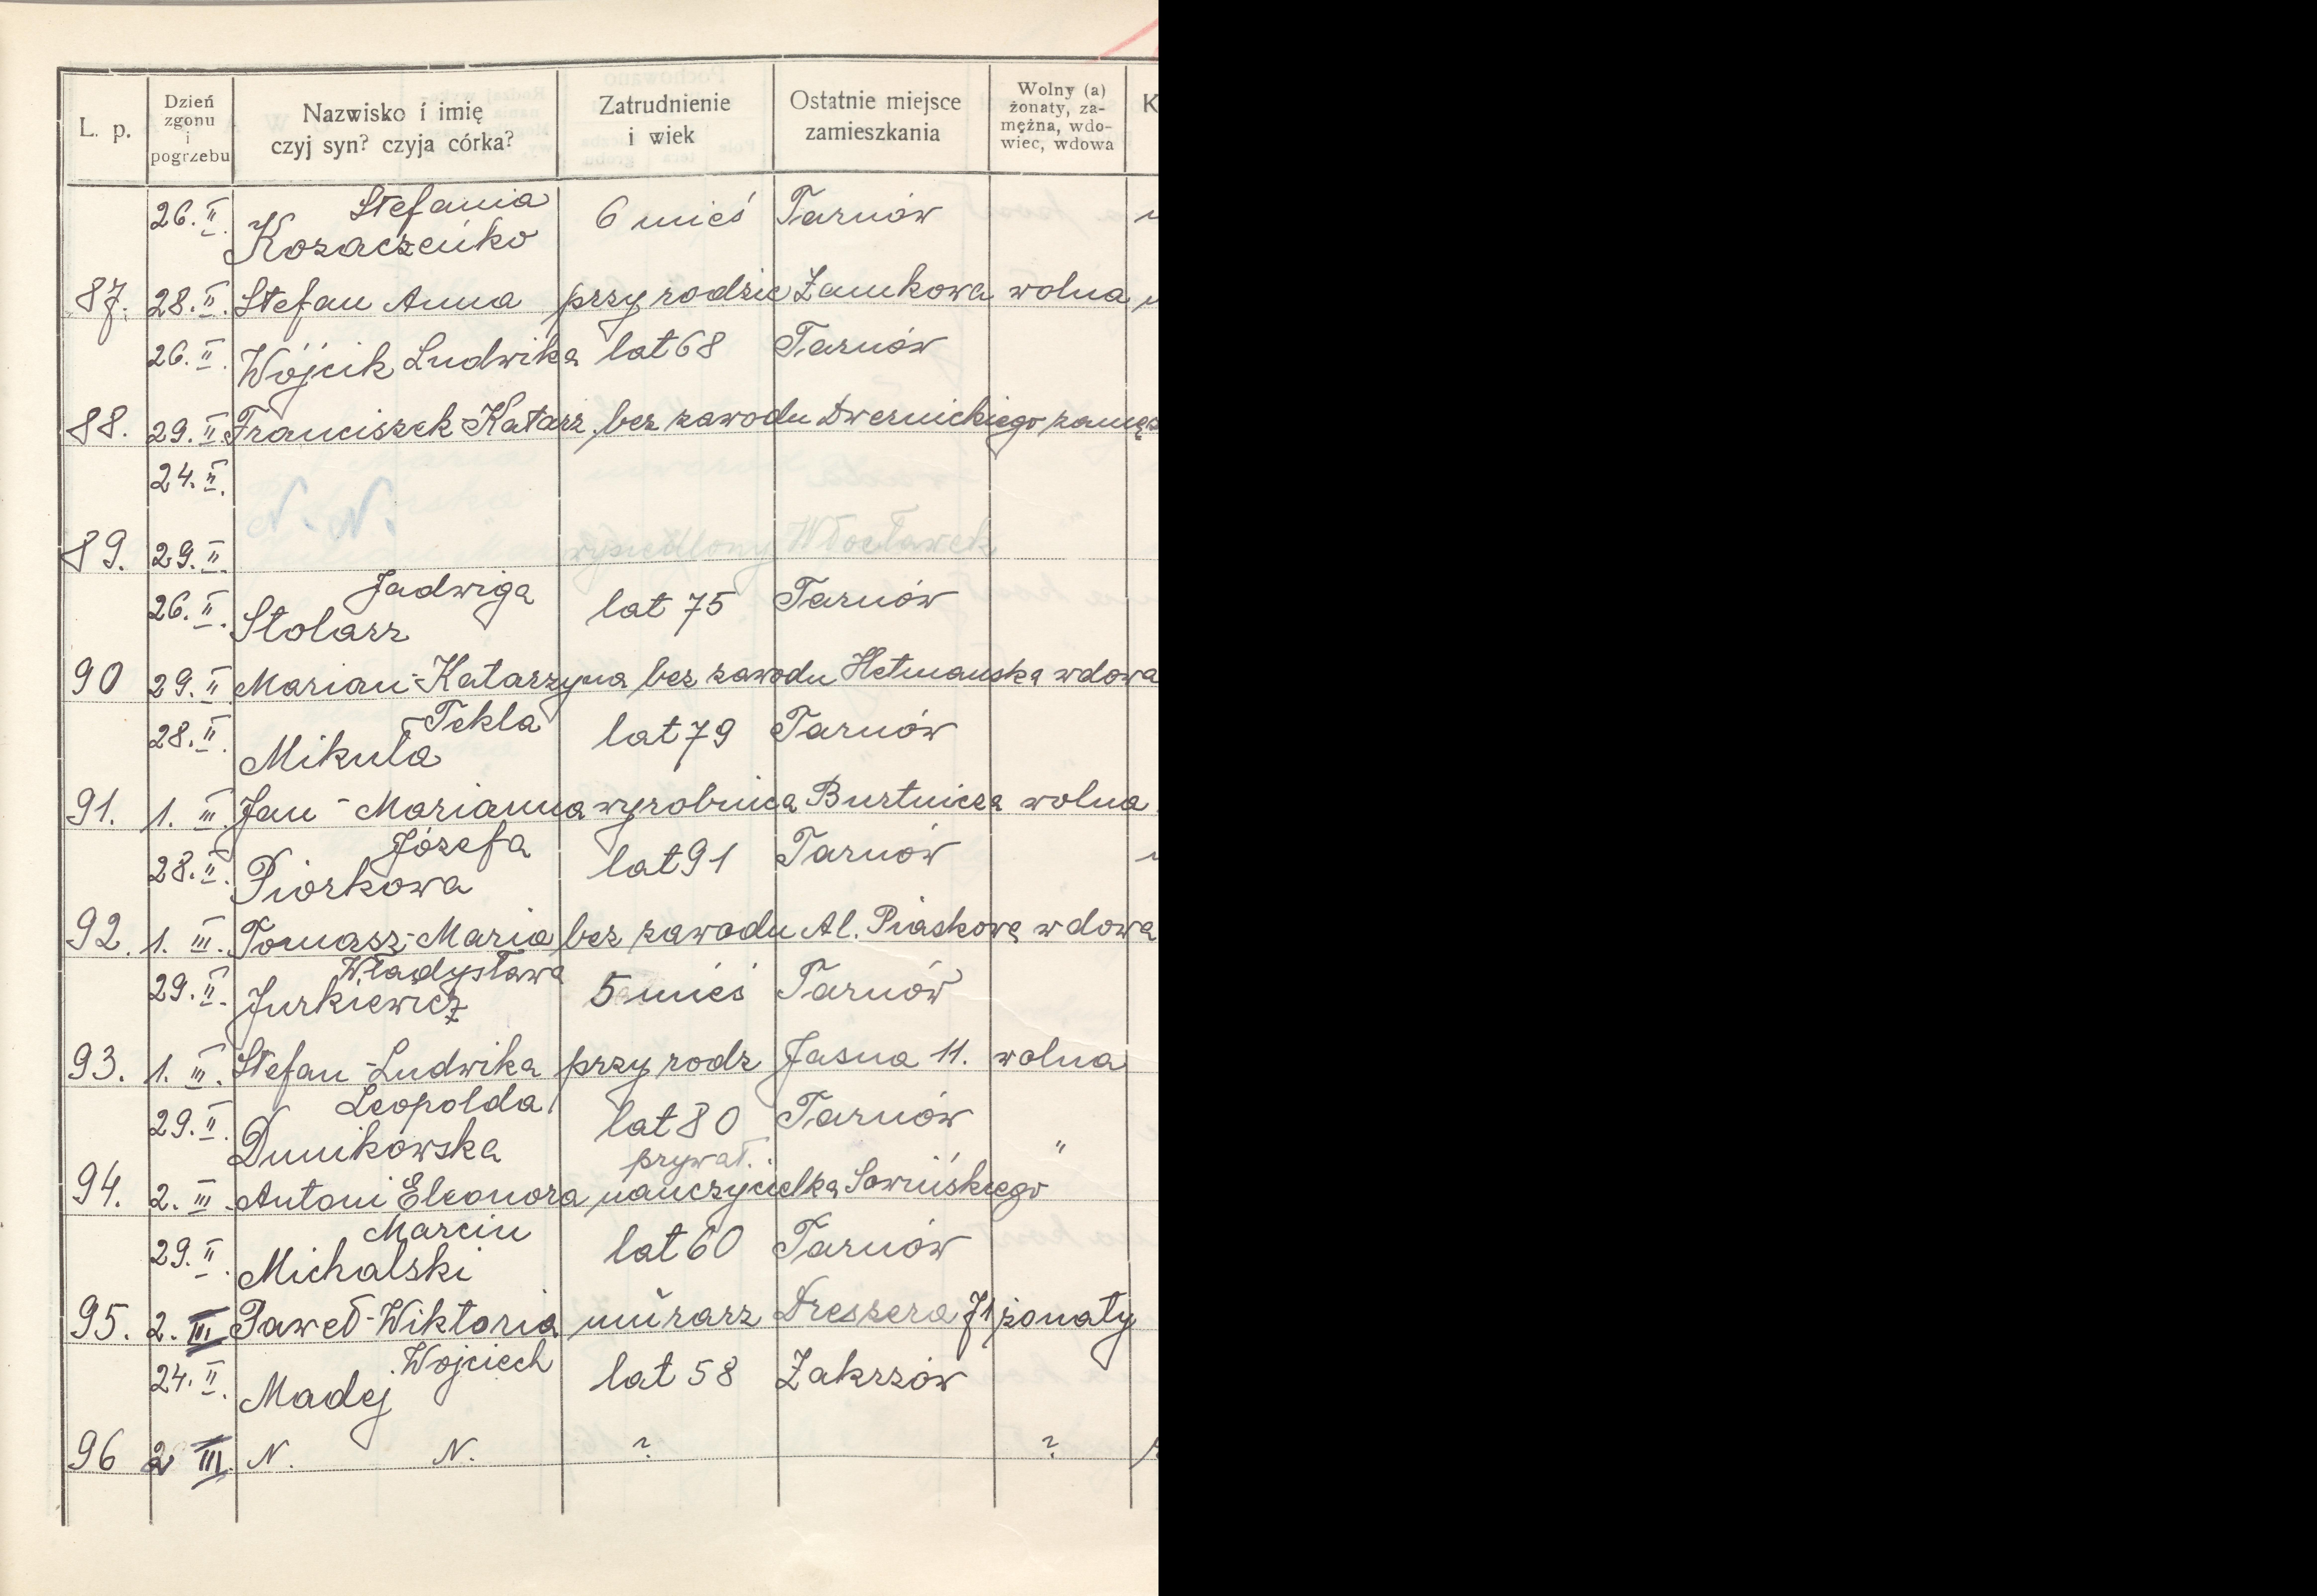 L. p.
Dzień
zgonu
i
pogrzebu
Nazwisko i imię
czyj syn? czyja córka?
Zatrudnienie
i wiek
Ostatnie miejsce
zamieszkania
Wolny (a)
żonaty, za-
mężna, wdo-
wiec, wdowa
K
26. II. Stefania 6 mieś Tarnów
Kozaczeńko
87. 28. II. Stefan Anna przy rodzic Zamkowa wolna
26. II. Wójcik Ludwika lat 68 Tarnów
88. 29. II. Franciszek-Katarz. bez zawodu Dwernickiego zamęż
24. II.
N. N.
89. 29. II. wysiedlony Włocławek
Jadwiga
26. II. Stolarz lat 75 Tarnów
90 29. II. Marian-Katarzyna bez zawodu Hetmańska wdowa
Tekla
28. II. Mikuła lat 79 Tarnów
91. 1. III. Jan - Marianna wyrobnica Burtnicza wolna
Józefa
28. II. Piorkowa lat 91 Tarnów
92. 1. III. Tomasz-Maria bez zawodu Al. Piaskowa wdowa
Władysława
29. II. Jurkiewicz 5 mieś Tarnów
93. 1. III. Stefan-Ludwika przy rodz Jasna 11. wolna
Leopolda
29. II. Dunikowska lat 80 Tarnów
prywat. "
94. 2. III. Antoni Eleonora nauczycielka Sowińskiego
Marcin
29. II. Michalski lat 60 Tarnów
95. 2. III Paweł-Wiktoria murarz Dreszera 71 żonaty
Wojciech
24. II. Madej lat 58 Zakrzów
96 2 III. N. N. ? ?